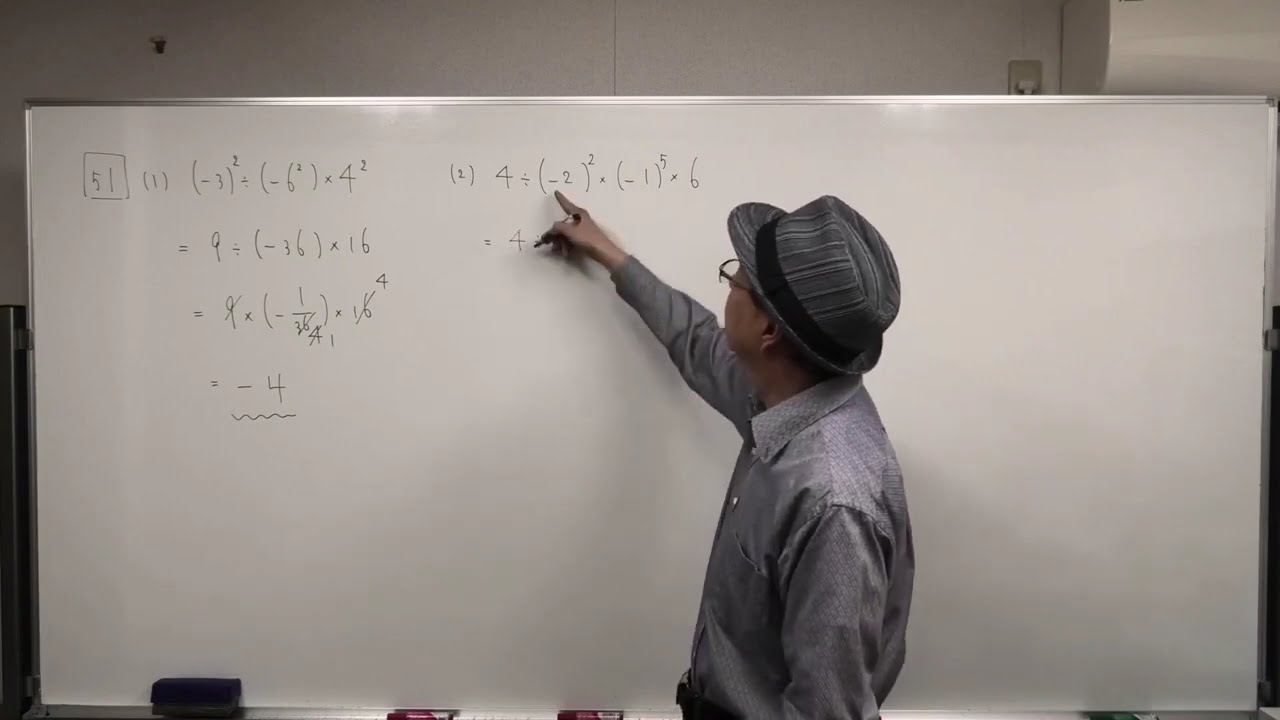 51 (1) (-3)² ÷ (-6²) × 4²
= 9 ÷ (-36) × 16
= 9 × (-1/36) × 16 4
4 1
= -4
(2) 4 ÷ (-2)² × (-1)⁵ × 6
= 4 ÷